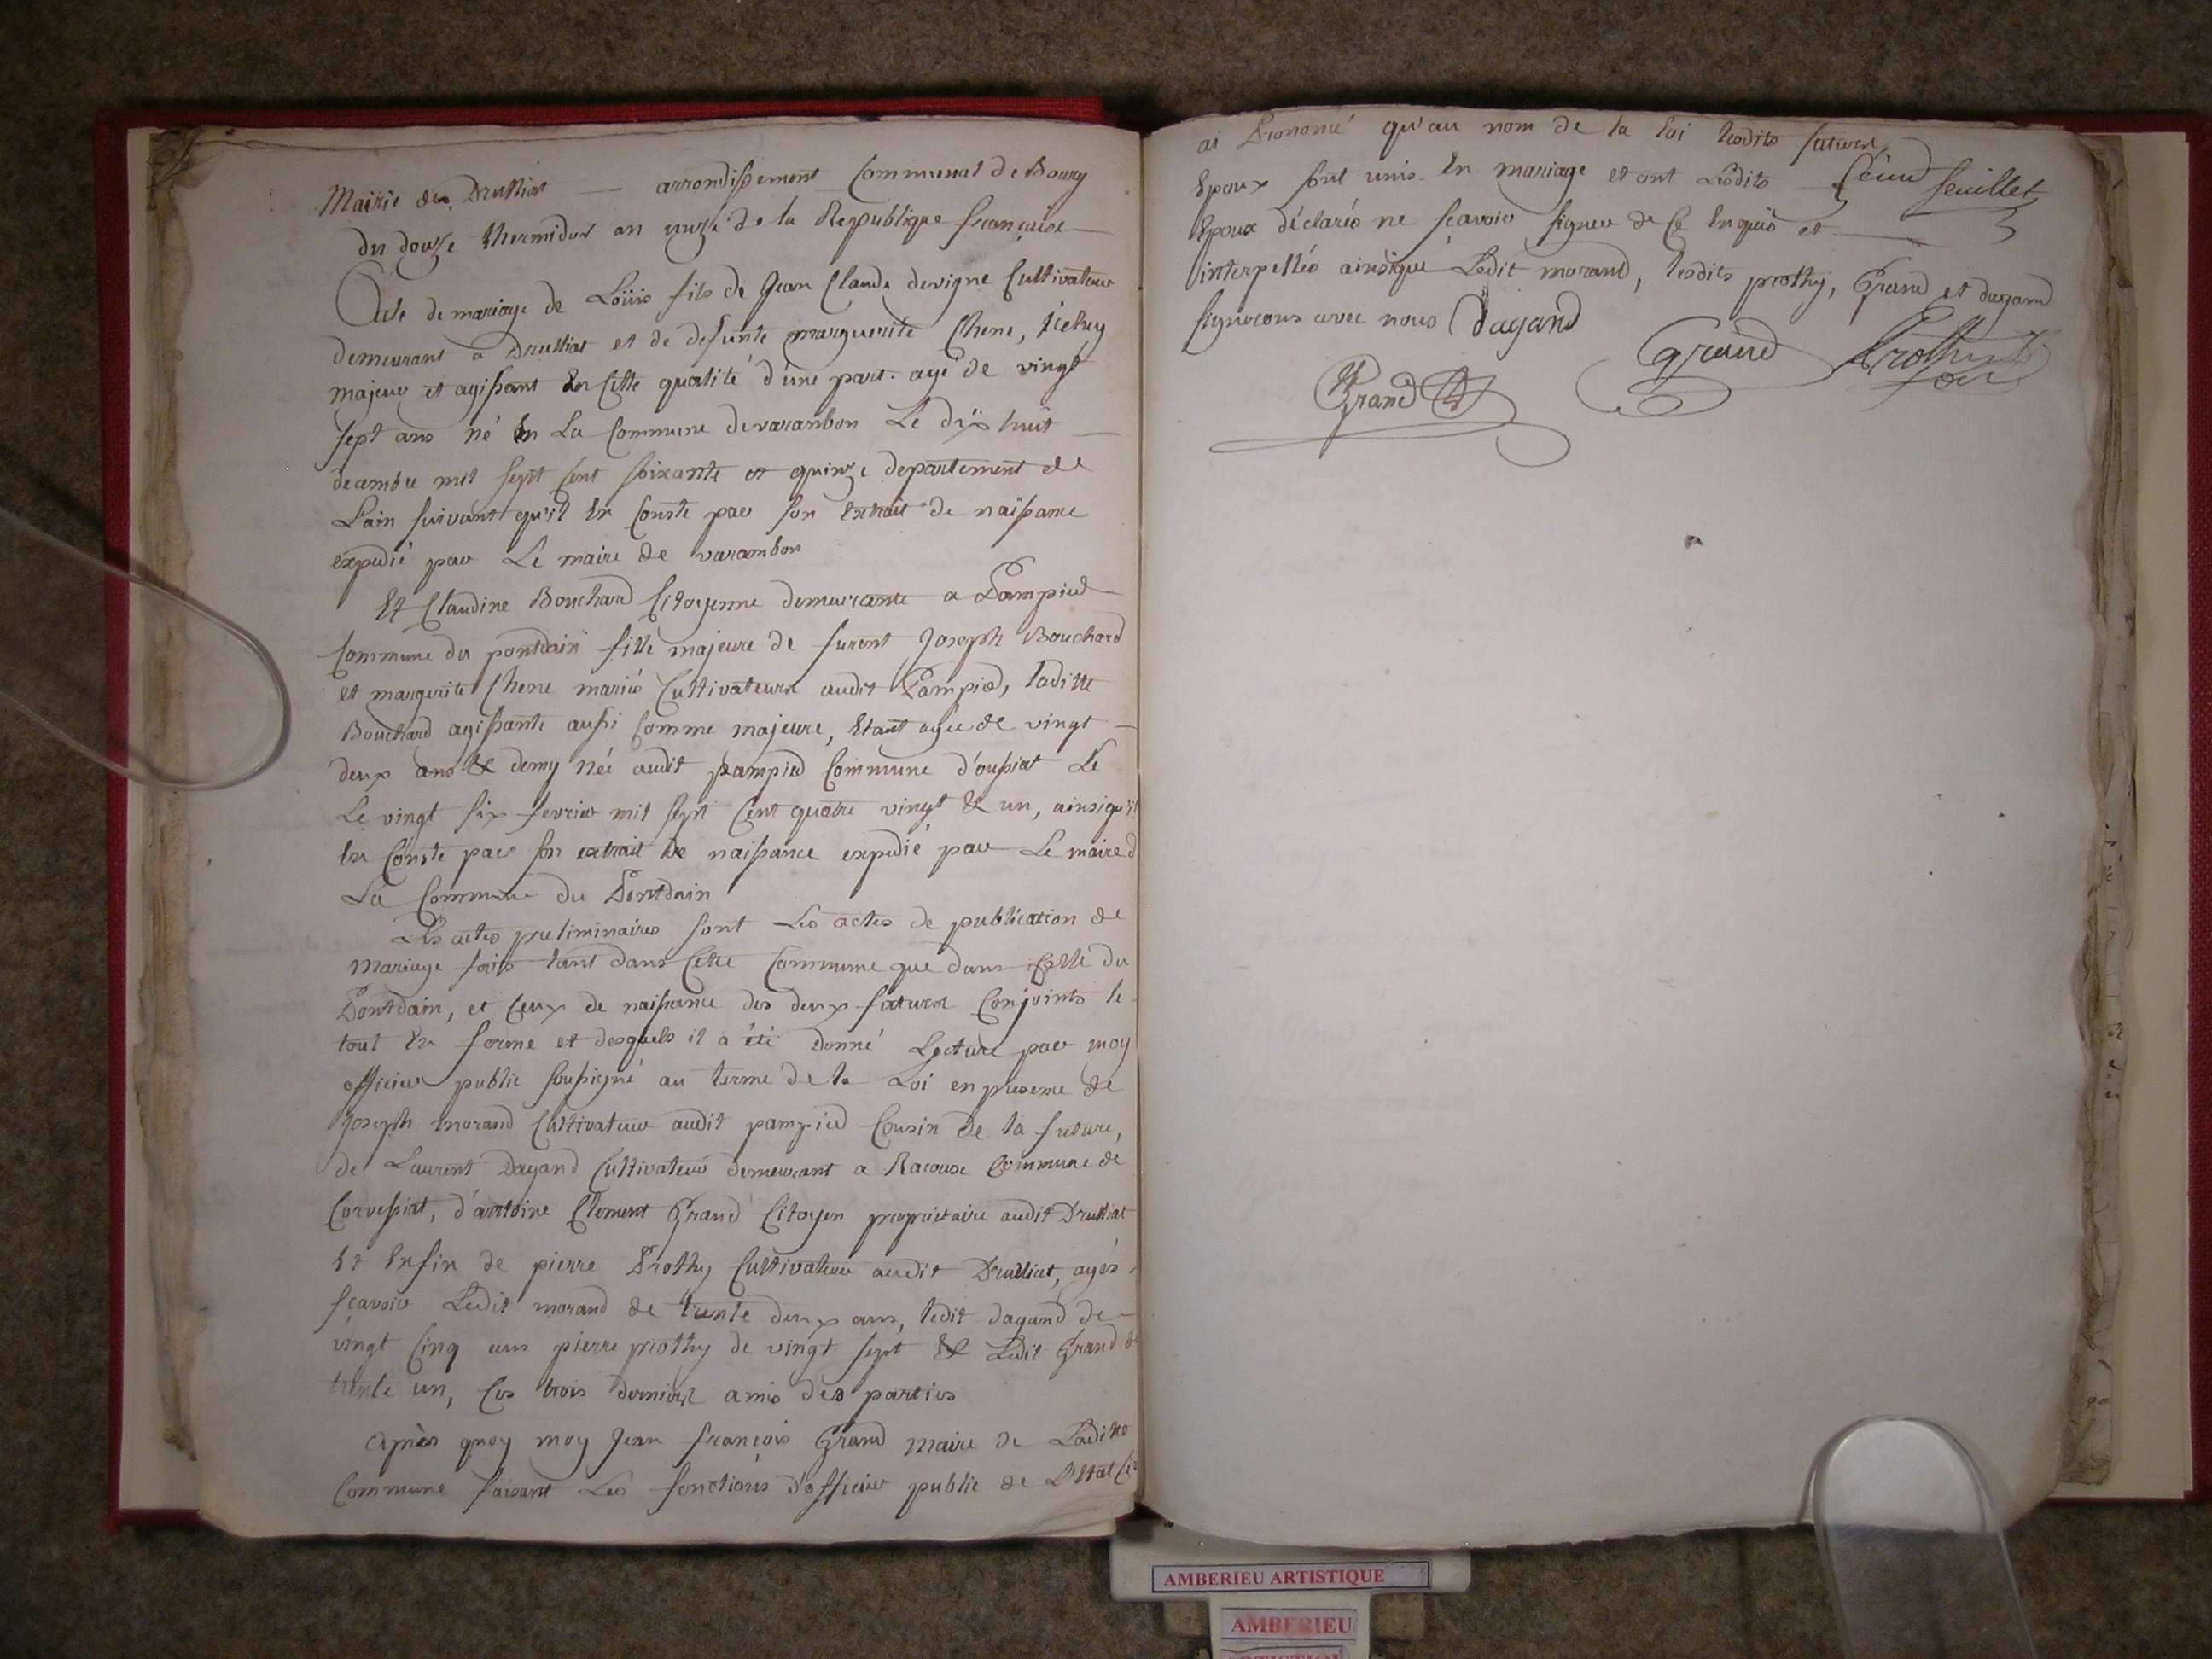 Mairie de Drulliat — arrondissement Communal de Bourg
du douze thermidor an onze de la Republique francaise —
Acte de mariage de Loüis fils de Jean Claude devigne Cultivateur
demeurant a Drulliat et de defunte marguerite Chene, icelluy
majeur et agissant En Cette qualité d'une part. agé de vingt
sept ans né En La Commune devarambon Le dix huit —
decembre mil sept Cent soixante et quinze departement de
L'ain suivant qu'il En Conste par son Extrait de naissance
expedié par Le maire de varambon
Et Claudine Bouchard Citoyenne demeurante a Pampied
Commune du pontdain fille majeure de furent Joseph Bouchard
et margurite Chene mariés Cultivateurs audit Pampied, laditte
Bouchard agissante aussi Comme majeure, Etant agée de vingt —
deux ans & demy née audit pampied Commune d'oussiat Le
Le vingt six fevrier mil sept Cent quatre vingt & un, ainsiqu'il
En Conste par son extrait de naissance expedié par Le maire d
La Commune du Pontdain
Les actes preliminaires sont Les actes de publication de
Mariage faits tant dans Cette Commune que dans Celle du
Pontdain, et Ceux de naissance des deux futurs Conjoints le
tout En forme et desquels il à été donné Lecture par moy
officier public soussigné au terme de la Loi en presence de
Joseph morand Cultivateur audit pampied Cousin de la future,
de Laurent Dagand Cultivateur demeurant a Racouse Commune de
Corvessiat, d'antoine Clement Grand Citoyen propriétaire audit Drulliat
Et Enfin de pierre Prothy Cultivateur audit Drulliat, agés
sçavoir Ledit morand de trente deux ans, ledit dagand de —
vingt Cinq ans pierre prothy de vingt sept & Ledit Grand de
trente un, Ces trois derniers amis des parties
après quoy moy Jean françois Grand maire de Laditte
Commune faisant Les fonctions d'officier public de L'Etat
ai Prononcé qu'au nom de la loi lesdits futurs
Epoux sont unis En mariage et ont Lesdits — feuillet
Epoux déclarés ne sçavoir signer de Ce Enquis et —
interpellés ainsique Ledit morand, lesdits prothy, Grand et dagand
signerons avec nous Dagand
Grand Prothy
Grand
AMBERIEU ARTISTIQUE
AMBERIEU
ARTISTIQUE